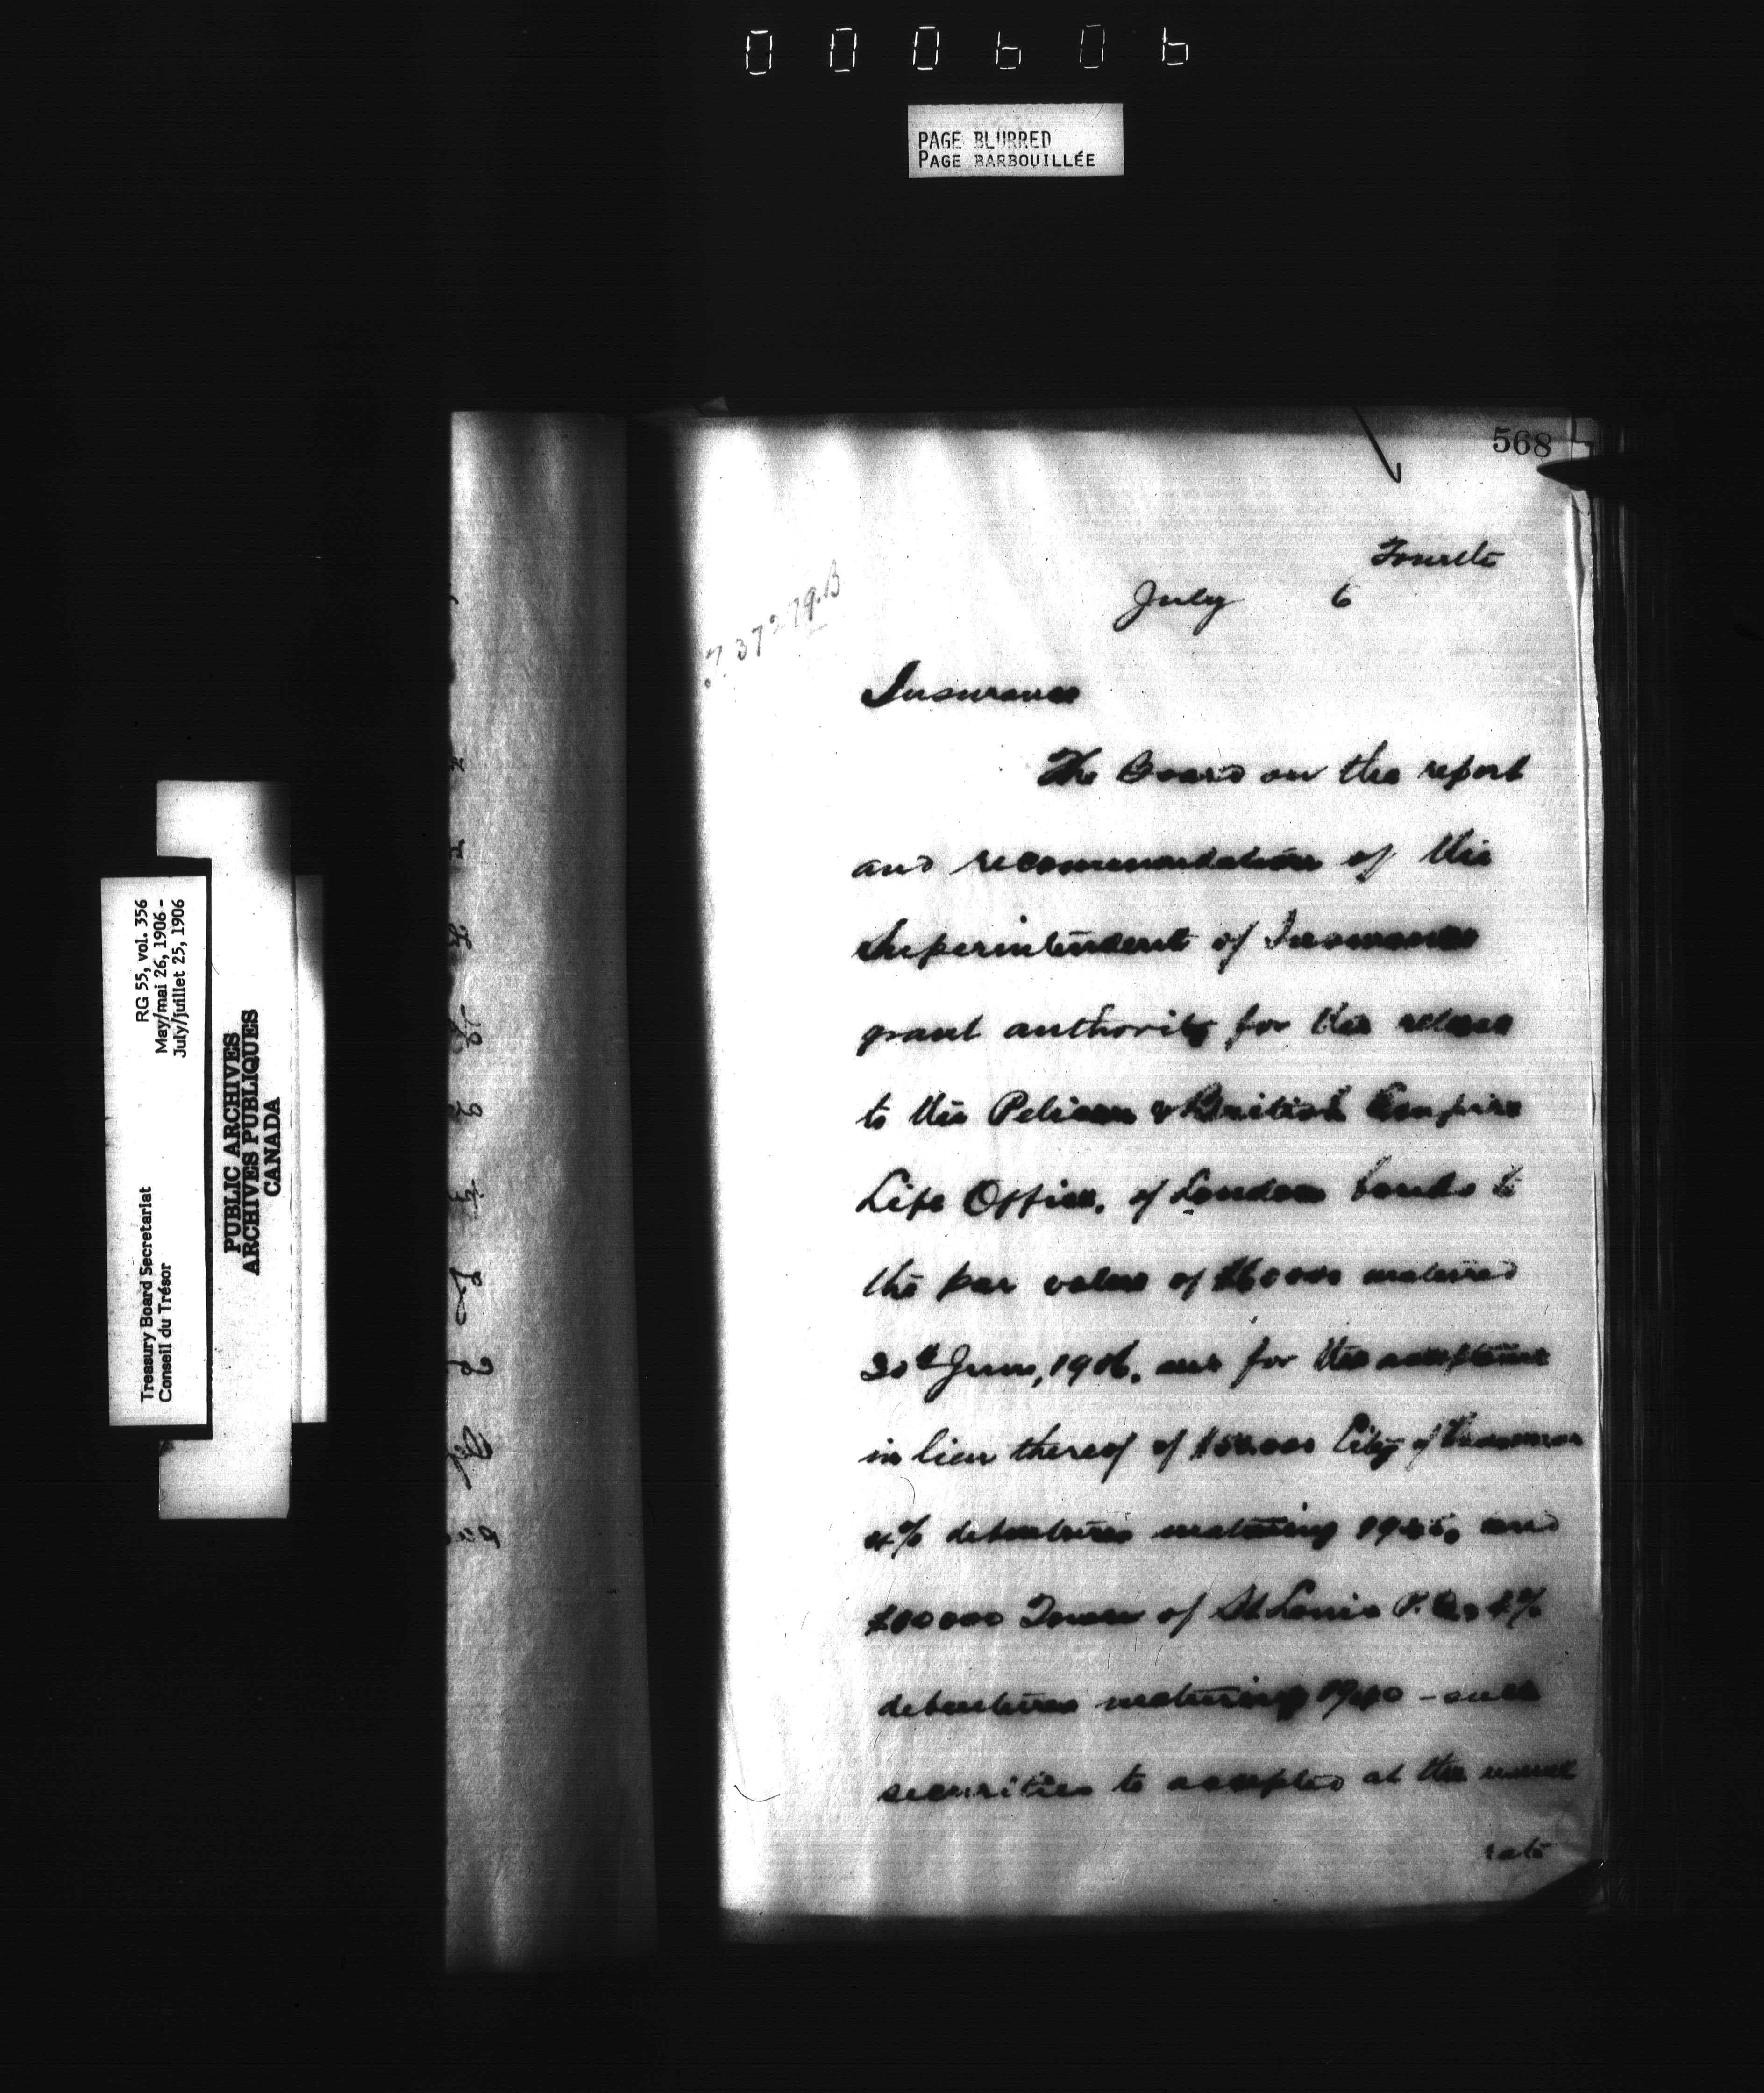 000606
PAGE BLURRED
PAGE BARBOUILLÉE
RG 55, vol. 356
May/mai 26, 1906 -
July/juillet 25, 1906
Treasury Board Secretariat
Conseil du Trésor
PUBLIC ARCHIVES
ARCHIVES PUBLIQUES
CANADA
568
Fourth
July 6
37279.B
Insurance
The Board on the report
and recommendation of the
Superintendent of Insurance
grant authority for the release
to the Pelican & British Empire
Life Office, of London bonds to
the par value of matured
30th June, 1906, and for the acceptance
in lieu thereof of $50.000 City of
4% debentures maturing and
Town of St Louis P.Q. 4%
debentures maturing 1940 - such
securities to accepted at the usual
rate